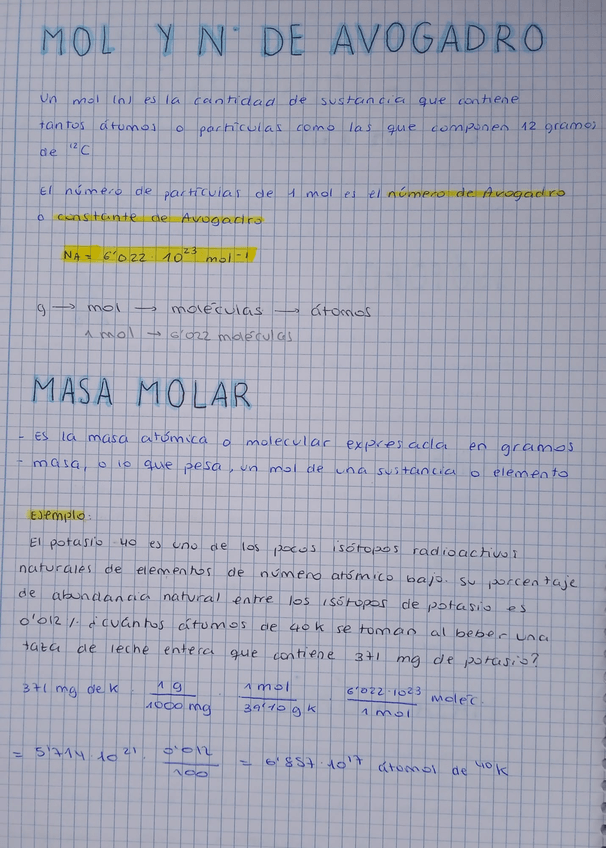 MOL Y Nº DE AVOGADRO
Un mol (n) es la cantidad de sustancia que contiene
tantos átomos o partículas como las que componen 12 gramos
de ¹²C
El número de partículas de 1 mol es el número de Avogadro
o constante de Avogadro
NA = 6'022 · 10²³ mol⁻¹
g → mol → moléculas → átomos
1 mol → 6'022 moléculas
MASA MOLAR
- Es la masa atómica o molecular expresada en gramos
- masa, o lo que pesa, un mol de una sustancia o elemento
Ejemplo:
El potasio 40 es uno de los pocos isótopos radioactivos
naturales de elementos de número atómico bajo. Su porcentaje
de abundancia natural entre los isótopos de potasio es
0'012%. ¿cuántos átomos de 40K se toman al beber una
taza de leche entera que contiene 371 mg de potasio?
371 mg de K · 1 g / 1000 mg · 1 mol / 39'10 g K · 6'022·10²³ moléc. / 1 mol
= 5'714 · 10²¹ · 0'012 / 100 = 6'857 · 10¹⁷ átomos de ⁴⁰K